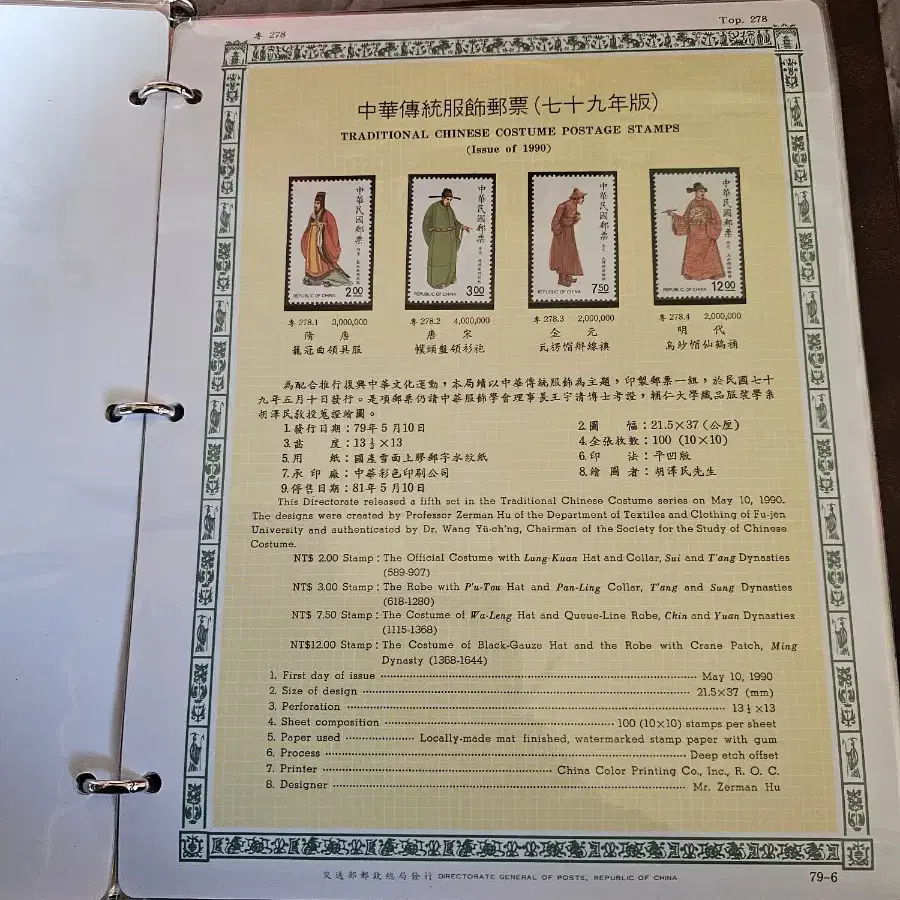 专 278
Top. 278
中華傳統服飾郵票(七十九年版)
TRADITIONAL CHINESE COSTUME POSTAGE STAMPS
(Issue of 1990)
中華民國郵票
REPUBLIC OF CHINA
2.00
中華民國郵票
REPUBLIC OF CHINA
3.00
中華民國郵票
REPUBLIC OF CHINA
7.50
中華民國郵票
REPUBLIC OF CHINA
12.00
专 278.1 3,000,000
专 278.2 4,000,000
专 278.3 2,000,000
专 278.4 2,000,000
隋 唐
唐 宋
金 元
明 代
龍冠曲領具服
幞頭盤領衫袍
瓦楞帽辮線襖
烏紗帽仙鶴補
為配合推行復興中華文化運動,本局續以中華傳統服飾為主題,印製郵票一組,於民國七十
九年五月十日發行。是項郵票仍請中華服飾學會理事長王宇清博士考證,輔仁大學織品服裝學系
胡澤民教授蒐證繪圖。
1.發行日期:79年5月10日
2.圖 幅:21.5×37 (公厘)
3.齒 度:13½×13
4.全張枚數:100 (10×10)
5.用 紙:國產雪面上膠郵字水紋紙
6.印 法:平凹版
7.承印廠:中華彩色印刷公司
8.繪圖者:胡澤民先生
9.停售日期:81年5月10日
This Directorate released a fifth set in the Traditional Chinese Costume series on May 10, 1990.
The designs were created by Professor Zerman Hu of the Department of Textiles and Clothing of Fu-jen
University and authenticated by Dr. Wang Yü-ch'ng, Chairman of the Society for the Study of Chinese
Costume.
NT$ 2.00 Stamp: The Official Costume with Lung-Kuan Hat and Collar, Sui and T'ang Dynasties
(589-907)
NT$ 3.00 Stamp: The Robe with P'u-Tou Hat and Pan-Ling Collar, T'ang and Sung Dynasties
(618-1280)
NT$ 7.50 Stamp: The Costume of Wa-Leng Hat and Queue-Line Robe, Chin and Yuan Dynasties
(1115-1368)
NT$12.00 Stamp: The Costume of Black-Gauze Hat and the Robe with Crane Patch, Ming
Dynasty (1368-1644)
1. First day of issue ........ May 10, 1990
2. Size of design ........ 21.5×37 (mm)
3. Perforation ........ 13½×13
4. Sheet composition ........ 100 (10×10) stamps per sheet
5. Paper used ........ Locally-made mat finished, watermarked stamp paper with gum
6. Process ........ Deep etch offset
7. Printer ........ China Color Printing Co., Inc., R. O. C.
8. Designer ........ Mr. Zerman Hu
交通部郵政總局發行 DIRECTORATE GENERAL OF POSTS, REPUBLIC OF CHINA
79-6